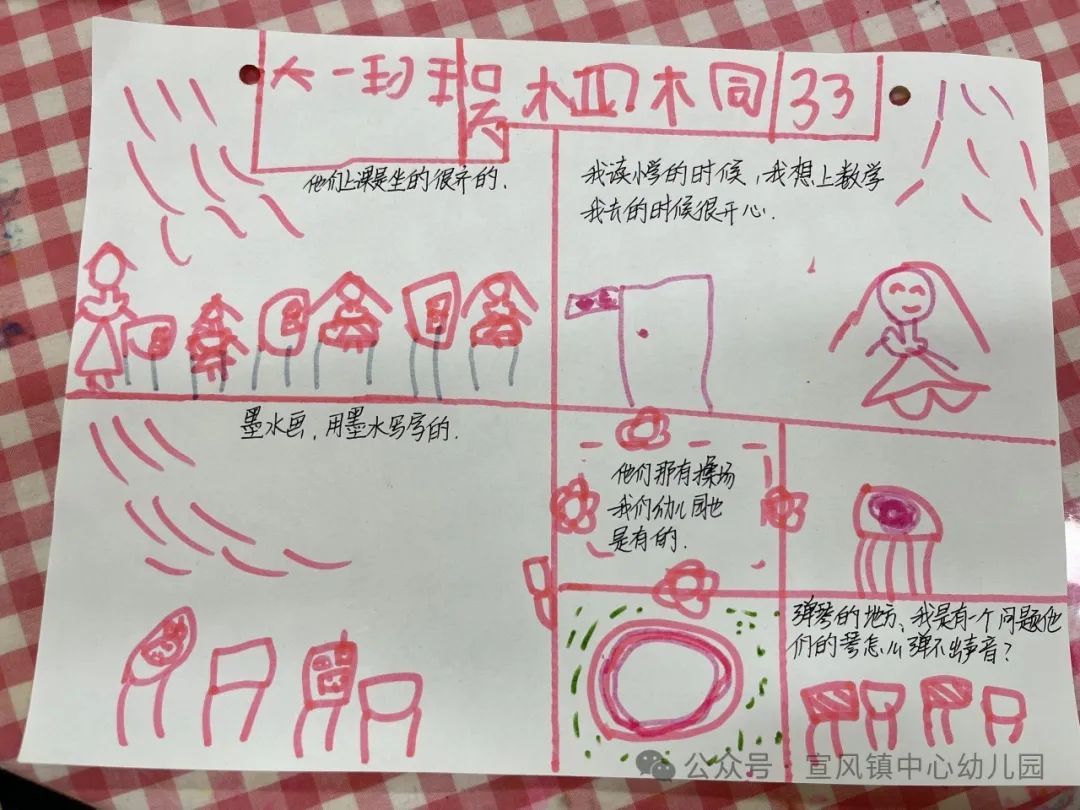 大一班 木 木同 33
他们上课是坐的很齐的.
我读小学的时候，我想上数学
我去的时候很开心.
墨水画，用墨水写字的.
他们那有操场
我们幼儿园也
是有的.
弹琴的地方、我是有一个问题他
们的琴怎么弹不出声音？
公众号·宣风镇中心幼儿园